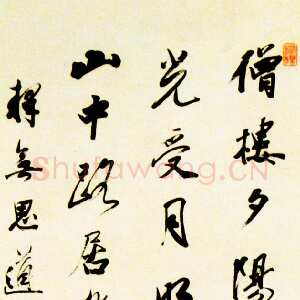 僧樓夕陽
光受月照
山中路居
釋無思道
ShufaWang.CN